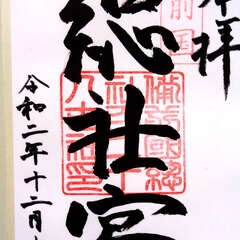 奉拝
前国
総社宮
備前國總
令和二年十二月